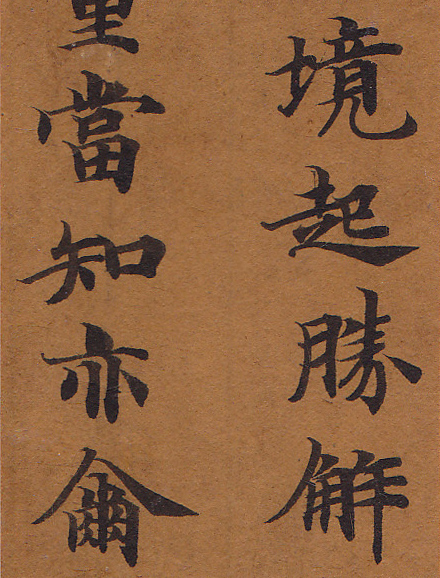 境起勝解
當知亦爾